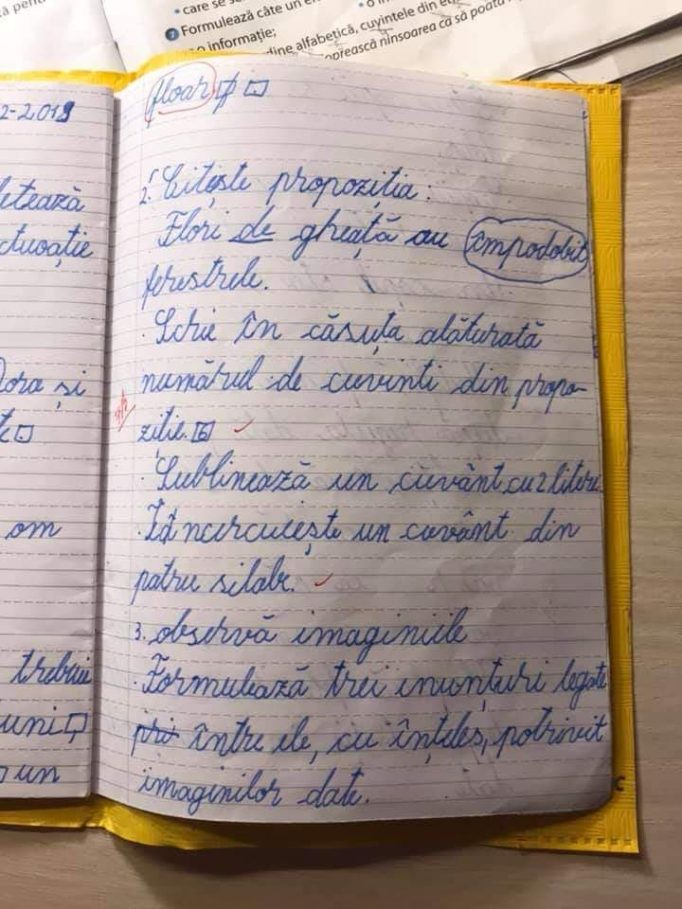 care se
Formulează câte un
o informație;
dine alfabetică, cuvintele din
oprească ninsoarea ca să poată
2-2019
etează
ctuație
Dora și
om
trebuie
uni
un
floar
2. Citește propoziția:
Flori de gheață au împodobit
ferestrele.
. Scrie în căsuța alăturată
numărul de cuvinti din propo-
ziție. 6
. Subliniează un cuvânt cu 2 litere
. Încurcuiește un cuvânt din
patru silabe.
3. observă imaginiile
. Formulează trei enunțuri legate
pri între ele, cu înțeles, potrivit
imaginilor date.